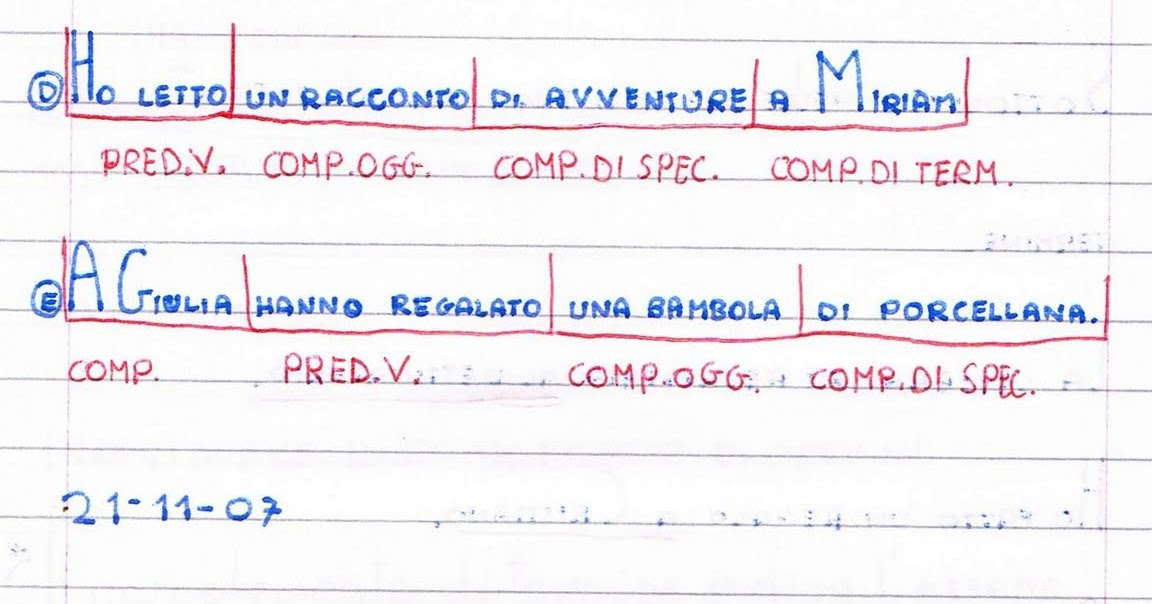 D Ho LETTO UN RACCONTO DI AVVENTURE A MIRIAM
PRED.V. COMP.OGG. COMP.DI SPEC. COMP.DI TERM.
E A GIULIA HANNO REGALATO UNA BAMBOLA DI PORCELLANA.
COMP. PRED.V. COMP.OGG. COMP.DI SPEC.
21-11-07